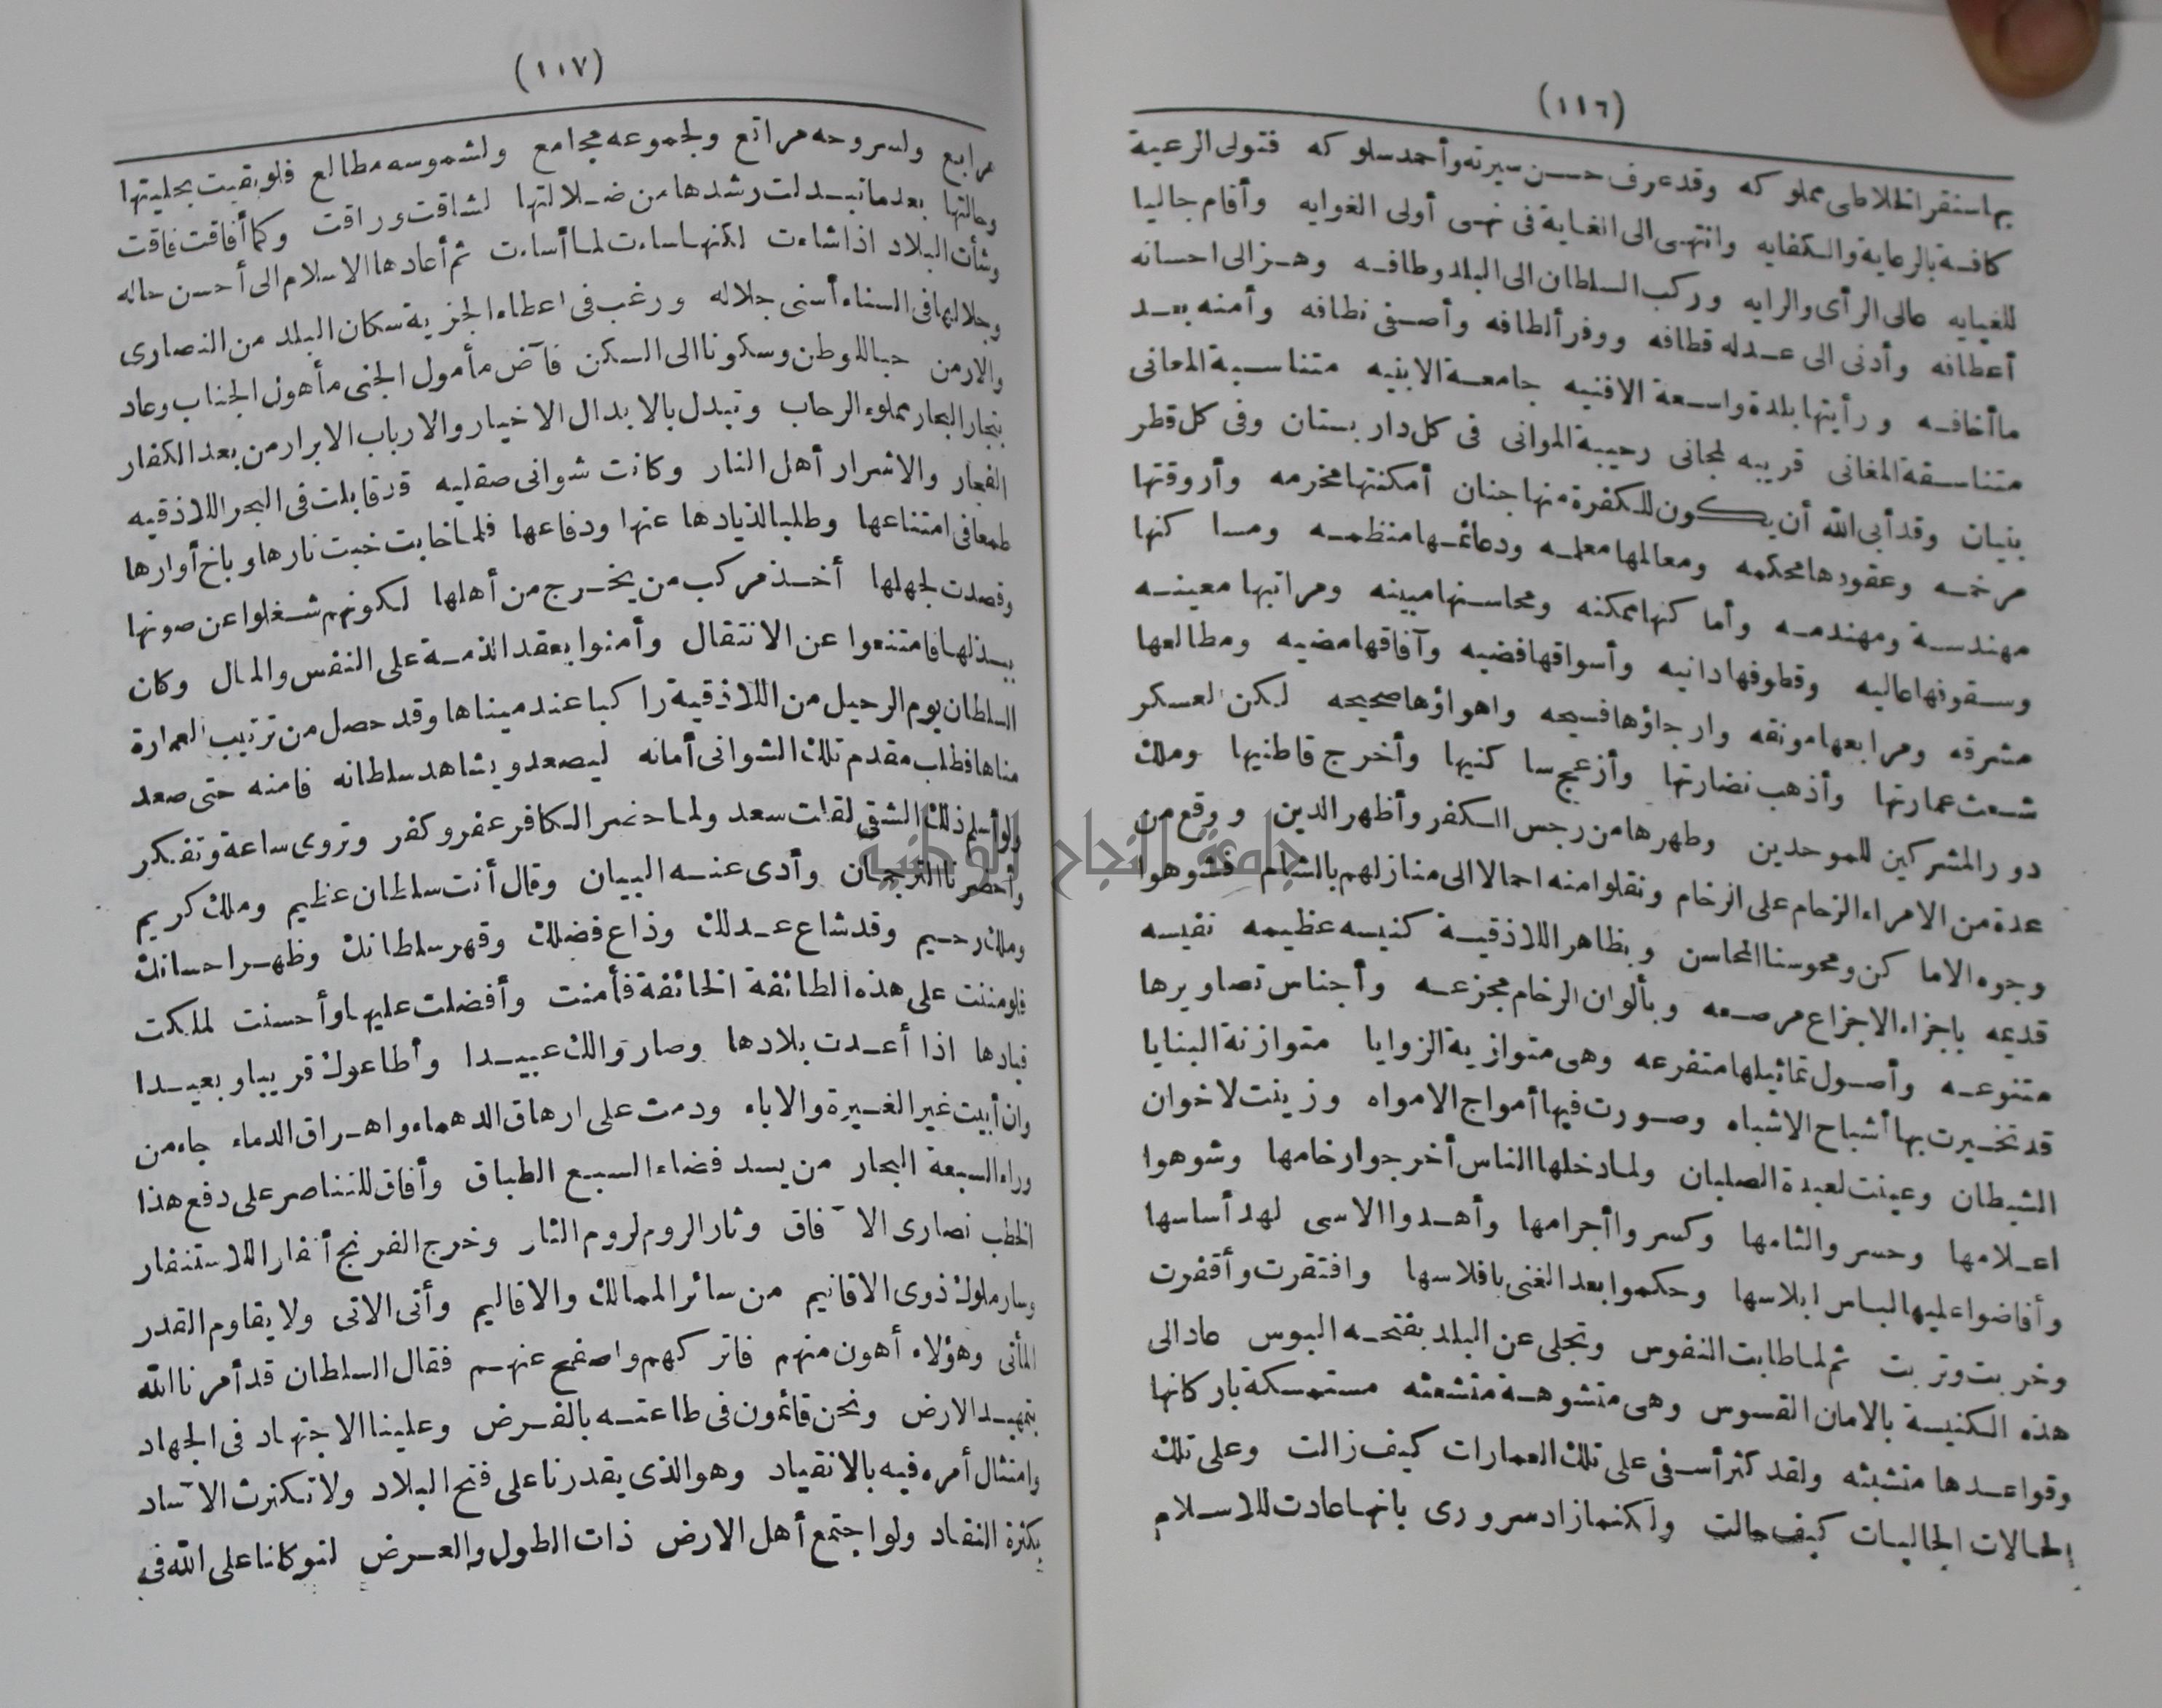 (١١٦)
بهاسنقر الخلاطى مملوكه وقدعرف حسن سيرته وأحمد سلوكه فتولى الرعية
كافة بالرعاية والكفايه وانتهى الى الغاية فى نهى أولى الغوايه وأقام جاليا
للغيايه عالى الرأى والرايه وركب السلطان الى البلد وطافه وهز الى احسانه
أعطافه وأدنى الى عدله قطافه ووفر ألطافه وأصفى نطافه وأمنه بعد
ما أخافه ورأيتها بلدة واسعة الافنيه جامعة الابنيه متناسبة المعانى
متناسقة المغانى قريبه المجانى رحيبة الموانى فى كل دار بستان وفى كل قطر
بنيان وقد أبى الله أن يكون للكفرة منها جنان أمكنتها مخرمه وأروقتها
مرخمه وعقودها محكمه ومعالمها معلمه ودعائمها منظمه ومساكنها
مهندسة ومهندمه وأماكنها ممكنه ومحاسنها مبينه ومراتبها معينه
وسقوفها عاليه وقطوفها دانيه وأسواقها فضيه وآفاقها مضيه ومطالعها
مشرقه ومرابعها مونقه وارجاؤها فسيحه واهواؤها صحيحه لكن العسكر
شعث عمارتها وأذهب نضارتها وأزعج ساكنيها وأخرج قاطنيها وملك
دور المشركين للموحدين وطهرها من رجس الكفر وأظهر الدين ووقع من
عدة من الامراء الزحام على الرخام ونقلوا منه احمالا الى منازلهم بالشام فشوهوا
وجوه الاماكن ومحوا سنا المحاسن وبظاهر اللاذقية كنيسه عظيمه نفيسه
قديمه باجزاء الاجزاع مرصعه وبألوان الرخام مجزعه وأجناس تصاويرها
متنوعه وأصول تماثيلها متفرعه وهى متوازية الزوايا متوازنة البنايا
قد تخيرت بها أشباح الاشباه وصورت فيها أمواج الامواه وزينت لاخوان
الشيطان وعينت لعبدة الصلبان ولما دخلها الناس أخرجوا رخامها وشوهوا
اعلامها وحسروا لثامها وكسروا أجرامها وأهدوا الاسى لهد أساسها
وأفاضوا عليها لباس ابلاسها وحكموا بعد الغنى بافلاسها وافتقرت وأقفرت
وخربت وتربت ثم لما طابت النفوس وتجلى عن البلد بفتحه البوس عاد الى
هذه الكنيسة بالامان القسوس وهى متشوهة متشعثه مستمسكة باركانها
وقواعدها متشبثه ولقد كثر أسفى على تلك العمارات كيف زالت وعلى تلك
الحالات الحاليات كيف حالت ولكنما زاد سرورى بانها عادت للاسلام
(١١٧)
مرابع ولسروحه مراتع ولجموعه مجامع ولشموسه مطالع فلو بقيت بحليتها
وحالتها بعدما تبدلت رشدها من ضلالتها لشاقت وراقت وكما أفاقت فاقت
وشأت البلاد اذا شاءت لكنها ساءت لما أساءت ثم أعادها الاسلام الى أحسن حاله
وجلا لها فى السناء أسنى جلاله ورغب فى اعطاء الجزية سكان البلد من النصارى
والارمن حبا للوطن وسكونا الى السكن فآض مأمول الجنى مأهول الجناب وعاد
بتجار البحار مملوء الرحاب وتبدل بالابدال الاخيار والارباب الابرار من بعد الكفار
الفجار والاشرار أهل النار وكانت شوانى صقليه قد قابلت فى البحر اللاذقيه
طمعا فى امتناعها وطلبا لذيادها عنها ودفاعها فلما خابت خبت نارها وباخ أوارها
وقصدت لجهلها أخذ مركب من يخرج من أهلها لكونهم شغلوا عن صونها
ببذلها فامتنعوا عن الانتقال وأمنوا بعقد الذمة على النفس والمال وكان
السلطان يوم الرحيل من اللاذقية راكبا عند ميناها وقد حصل من ترتيب العمارة
مناها فطلب مقدم تلك الشوانى أمانه ليصعد ويشاهد سلطانه فامنه حتى صعد
ولو أسلم ذلك الشقى لقلت سعد ولما حضر الكافر عفر وكفر وتروى ساعة وتفكر
وأحضرنا الترجمان وأدى عنه البيان وقال أنت سلطان عظيم وملك كريم
وملك رحيم وقد شاع عدلك وذاع فضلك وقهر سلطانك وظهر احسانك
فلو مننت على هذه الطائفة الخائفة فأمنت وأفضلت عليها وأحسنت لملكت
قيادها اذا أعدت بلادها وصاروا لك عبيدا وأطاعوك قريبا وبعيدا
وان أبيت غير الغيرة والاباء ودمت على ارهاق الدهماء واهراق الدماء جاء من
وراء السبعة البحار من يسد فضاء السبع الطباق وأفاق للتناصر على دفع هذا
الخطب نصارى الآفاق وثار الروم لروم الثار وخرج الفرنج أنفارا للاستنفار
وسار ملوك ذوى الاقانيم من سائر الممالك والاقاليم وأتى الاتى ولا يقاوم القدر
المأتى وهؤلاء أهون منهم فاتركهم واصفح عنهم فقال السلطان قد أمرنا الله
بتمهيد الارض ونحن قائمون فى طاعته بالفرض وعلينا الاجتهاد فى الجهاد
وامتثال أمره فيه بالانقياد وهو الذى يقدرنا على فتح البلاد ولا تكترث الآساد
بكثرة النقاد ولو اجتمع أهل الارض ذات الطول والعرض لتوكلنا على الله فى
جامعة النجاح الوطنية